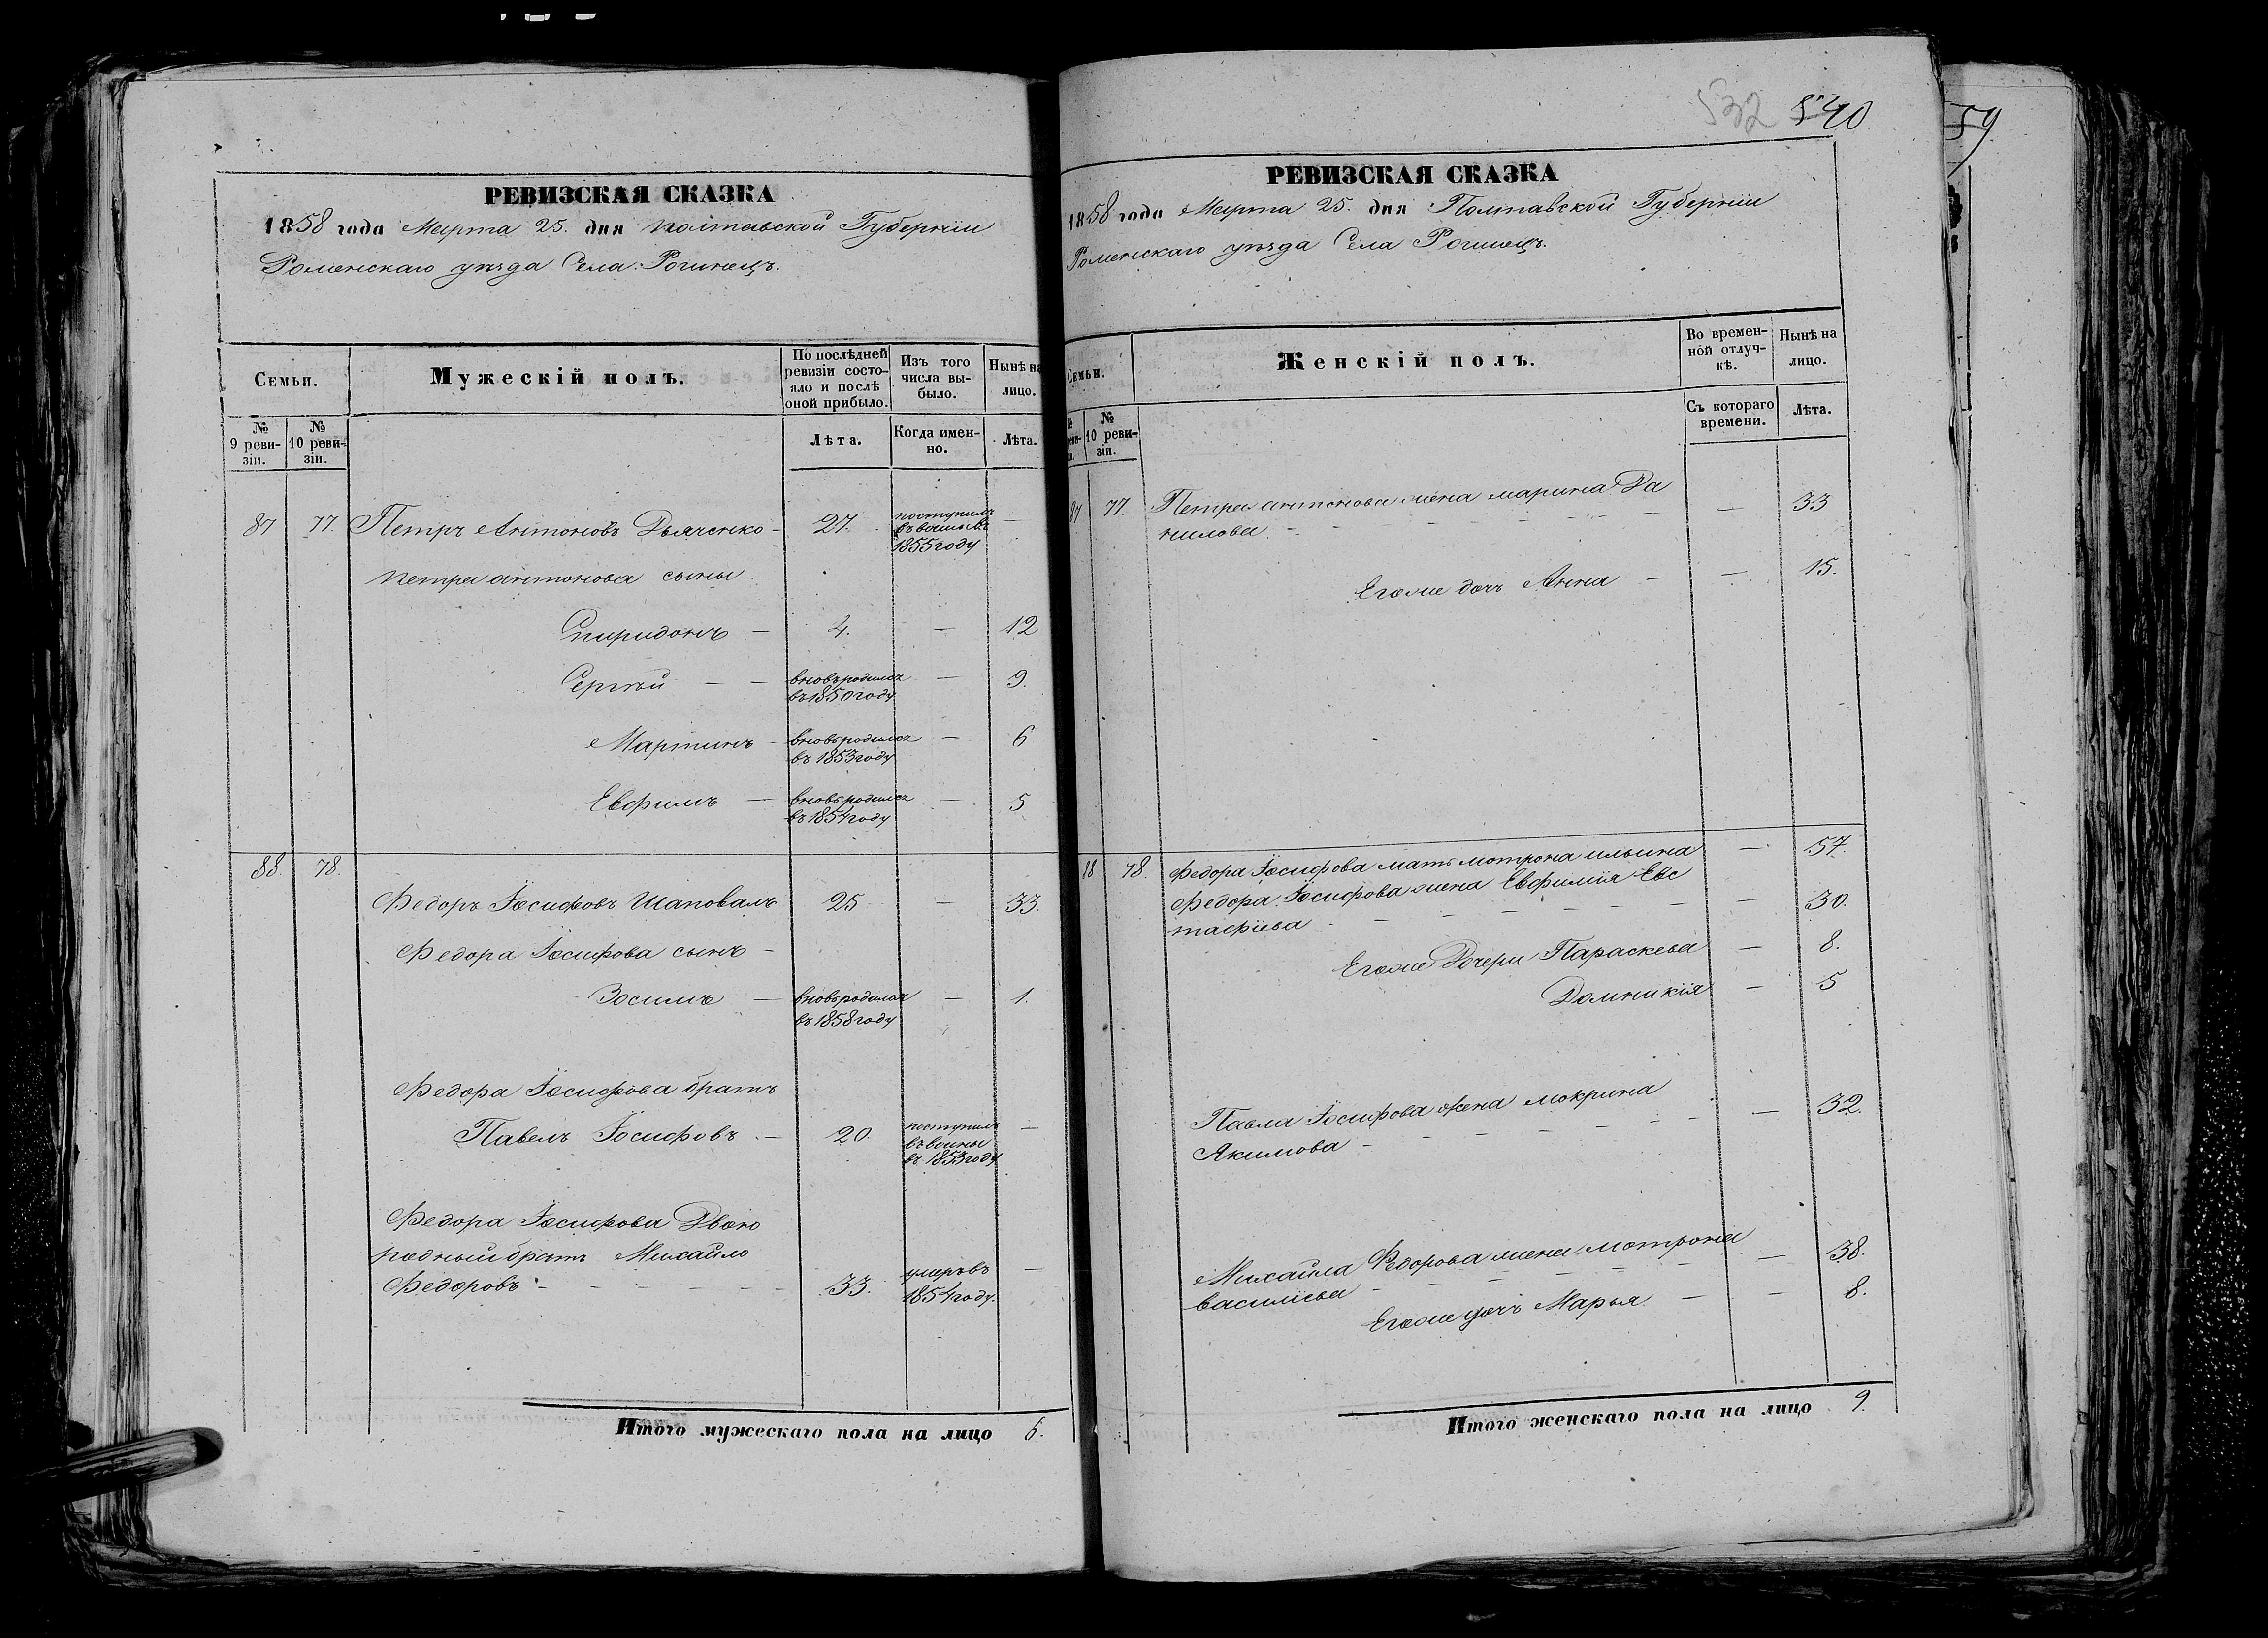 РЕВИЗСКАЯ СКАЗКА
1858 года Марта 25. дня Полтавской Губернiи
Роменскаго уѣзда Села Рогинецъ.
Семьи.
Мужескiй полъ.
По послѣдней ревизiи состо-
яло и послѣ
оной прибыло.
Изъ того
числа вы-
было.
Нынѣ на
лицо.
№
9 реви-
зiи.
№
10 реви-
зiи.
Лѣта.
Когда имен-
но.
Лѣта.
87 77. Петръ Антоновъ Дьяченко - 27. поступилъ
1855 году
Петра антонова сыны
Спиридонъ — 4. — 12
Сергѣй — — вновь родился — 9.
въ 1850 году
Мартинъ - вновь родился — 6
въ 1853 году
Евфимъ — вновь родился — 5
въ 1854 году
88. 78.
Федоръ Іосифовъ Шаповалъ 25 — 33.
Федора Іосифова сынъ -
Зосимъ — вновь родился — 1.
въ 1858 году
Федора Іосифова братъ
Павелъ Іосифовъ — 20. поступилъ —
въ воины
въ 1853 году
Федора Іосифова Двою
родный братъ Михайло
Федоровъ - - - - - 33. умеръ въ —
1854 году.
Итого мужескаго пола на лицо 6.
532 540
РЕВИЗСКАЯ СКАЗКА
1858 года Марта 25. дня Полтавской Губернiи
Роменскаго уѣзда Села Рогинецъ.
Семьи.
Женскiй полъ.
Во времен-
ной отлуч-
кѣ.
Нынѣ на
лицо.
№
10 реви-
зiи.
Съ котораго
времени.
Лѣта.
87 77. Петра антонова жена марина Да
нилова - - - - - — 33
Егоже дочь Анна — — 15.
88 78. Федора Іосифова мать мотрона ильина — 57.
Федора Іосифова жена Евфимiя Евс
тафiева - - - - - — 30.
Егоже Дочери Параскева — 8.
Домникiя — 5
Павла Іосифова жена мокрина
Акимова - - - - - — 32.
Михайла Федорова жена мотрона
василiева - - - - - — 38.
Егоже дочь Марья — — 8.
Итого женскаго пола на лицо 9.
59